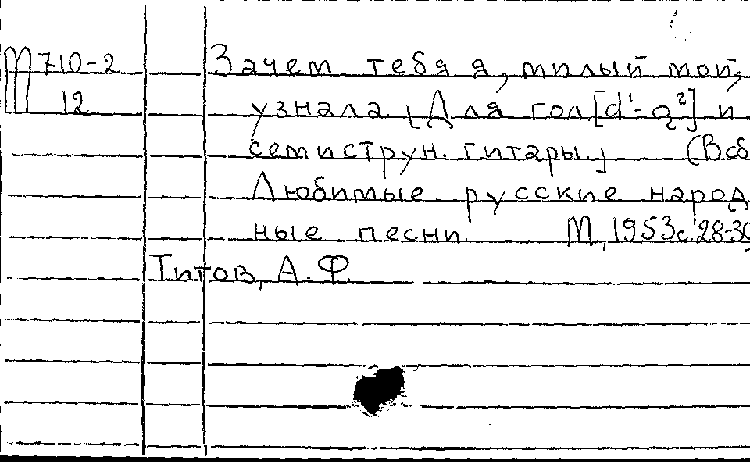 Ш710-2 Зачем тебя я, милый мой,
12 узнала [Для гол[d¹-a²] и
семиструн. гитары.] (В сб
Любимые русские народ
ные песни М, 1953 с. 28-30
Титов, А. Ф.